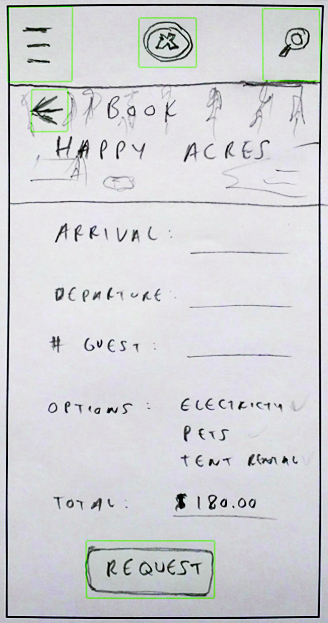 BOOK
HAPPY ACRES
ARRIVAL:
DEPARTURE
# GUEST:
OPTIONS: ELECTRICITY
PETS
TENT RENTAL
TOTAL: $180.00
REQUEST